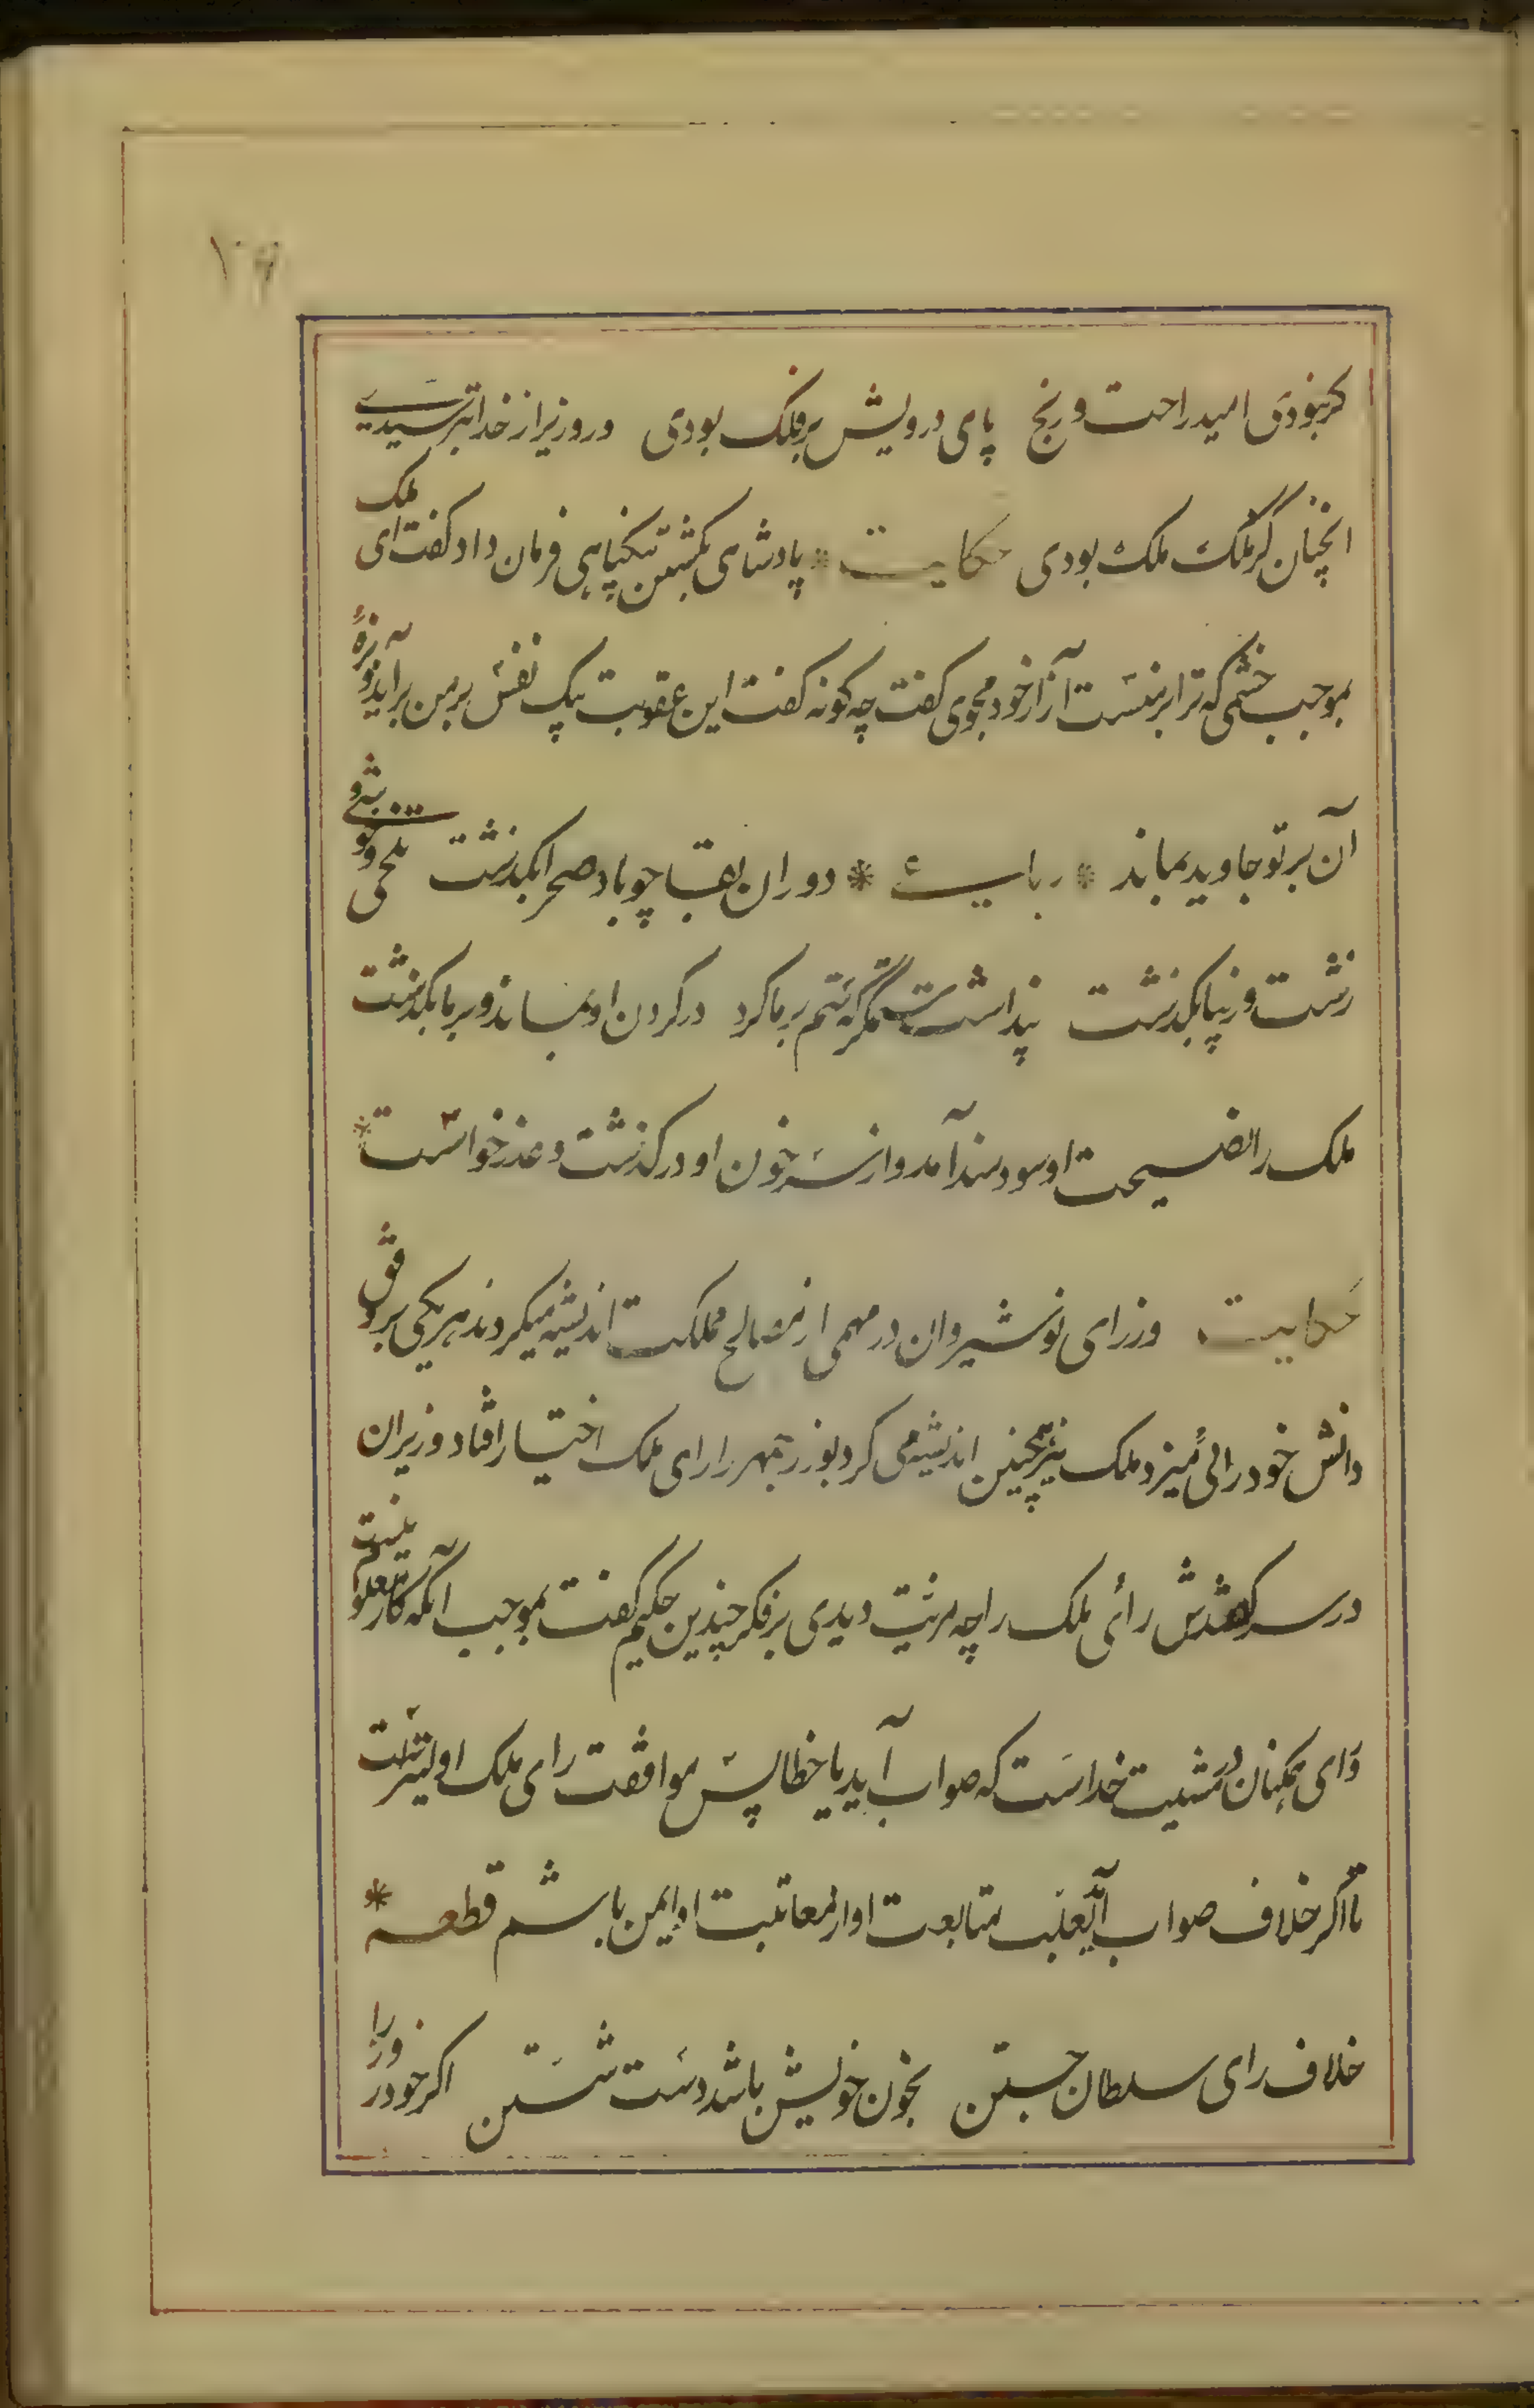 گرنبودی امید راحت و رنج پای درویش بر فلک بودی ور وزیر از خدا بترسیدی
انچنان کز ملک ملک بودی حکایت * پادشاهی بکشتن بیکناهی فرمان داد کفت ای ملک
بموجب خشمی که ترا بر منست آزار خود مجوی کفت چه کونه کفت این عقوبت بیک نفس بر من برآید و بزهٔ
آن بر تو جاوید بماند * رباعی * دوران بقا چو باد صحرا بکذشت تلخی و خوشی و
زشت و زیبا بکذشت پنداشت ستمگر که ستم بر ما کرد در کردن او بماند و بر ما بکذشت
ملک را نصیحت او سودمند آمد و از سر خون او درکذشت و عذر خواست *
حکایت وزرای نوشیروان در مهمی از مصالح مملکت اندیشه میکردند هر یکی بر وفق
دانش خود رائی میزد ملک نیز همچنین اندیشه می کرد بوزرجمهر را رای ملک اختیار افتاد وزیران
در سر کفتندش رأی ملک را چه مزیت دیدی بر فکر چندین حکیم کفت بموجب آنکه کار معلوم نیست
و رای همکنان در مشیت خداست که صواب آید یا خطا پس موافقت رای ملک اولیترست
تا اکر خلاف صواب آید بعلت متابعت او از معاتبت او ایمن باشم قطعه *
خلاف رای سلطان جستن بخون خویش باشد دست شستن اکر خود روز را